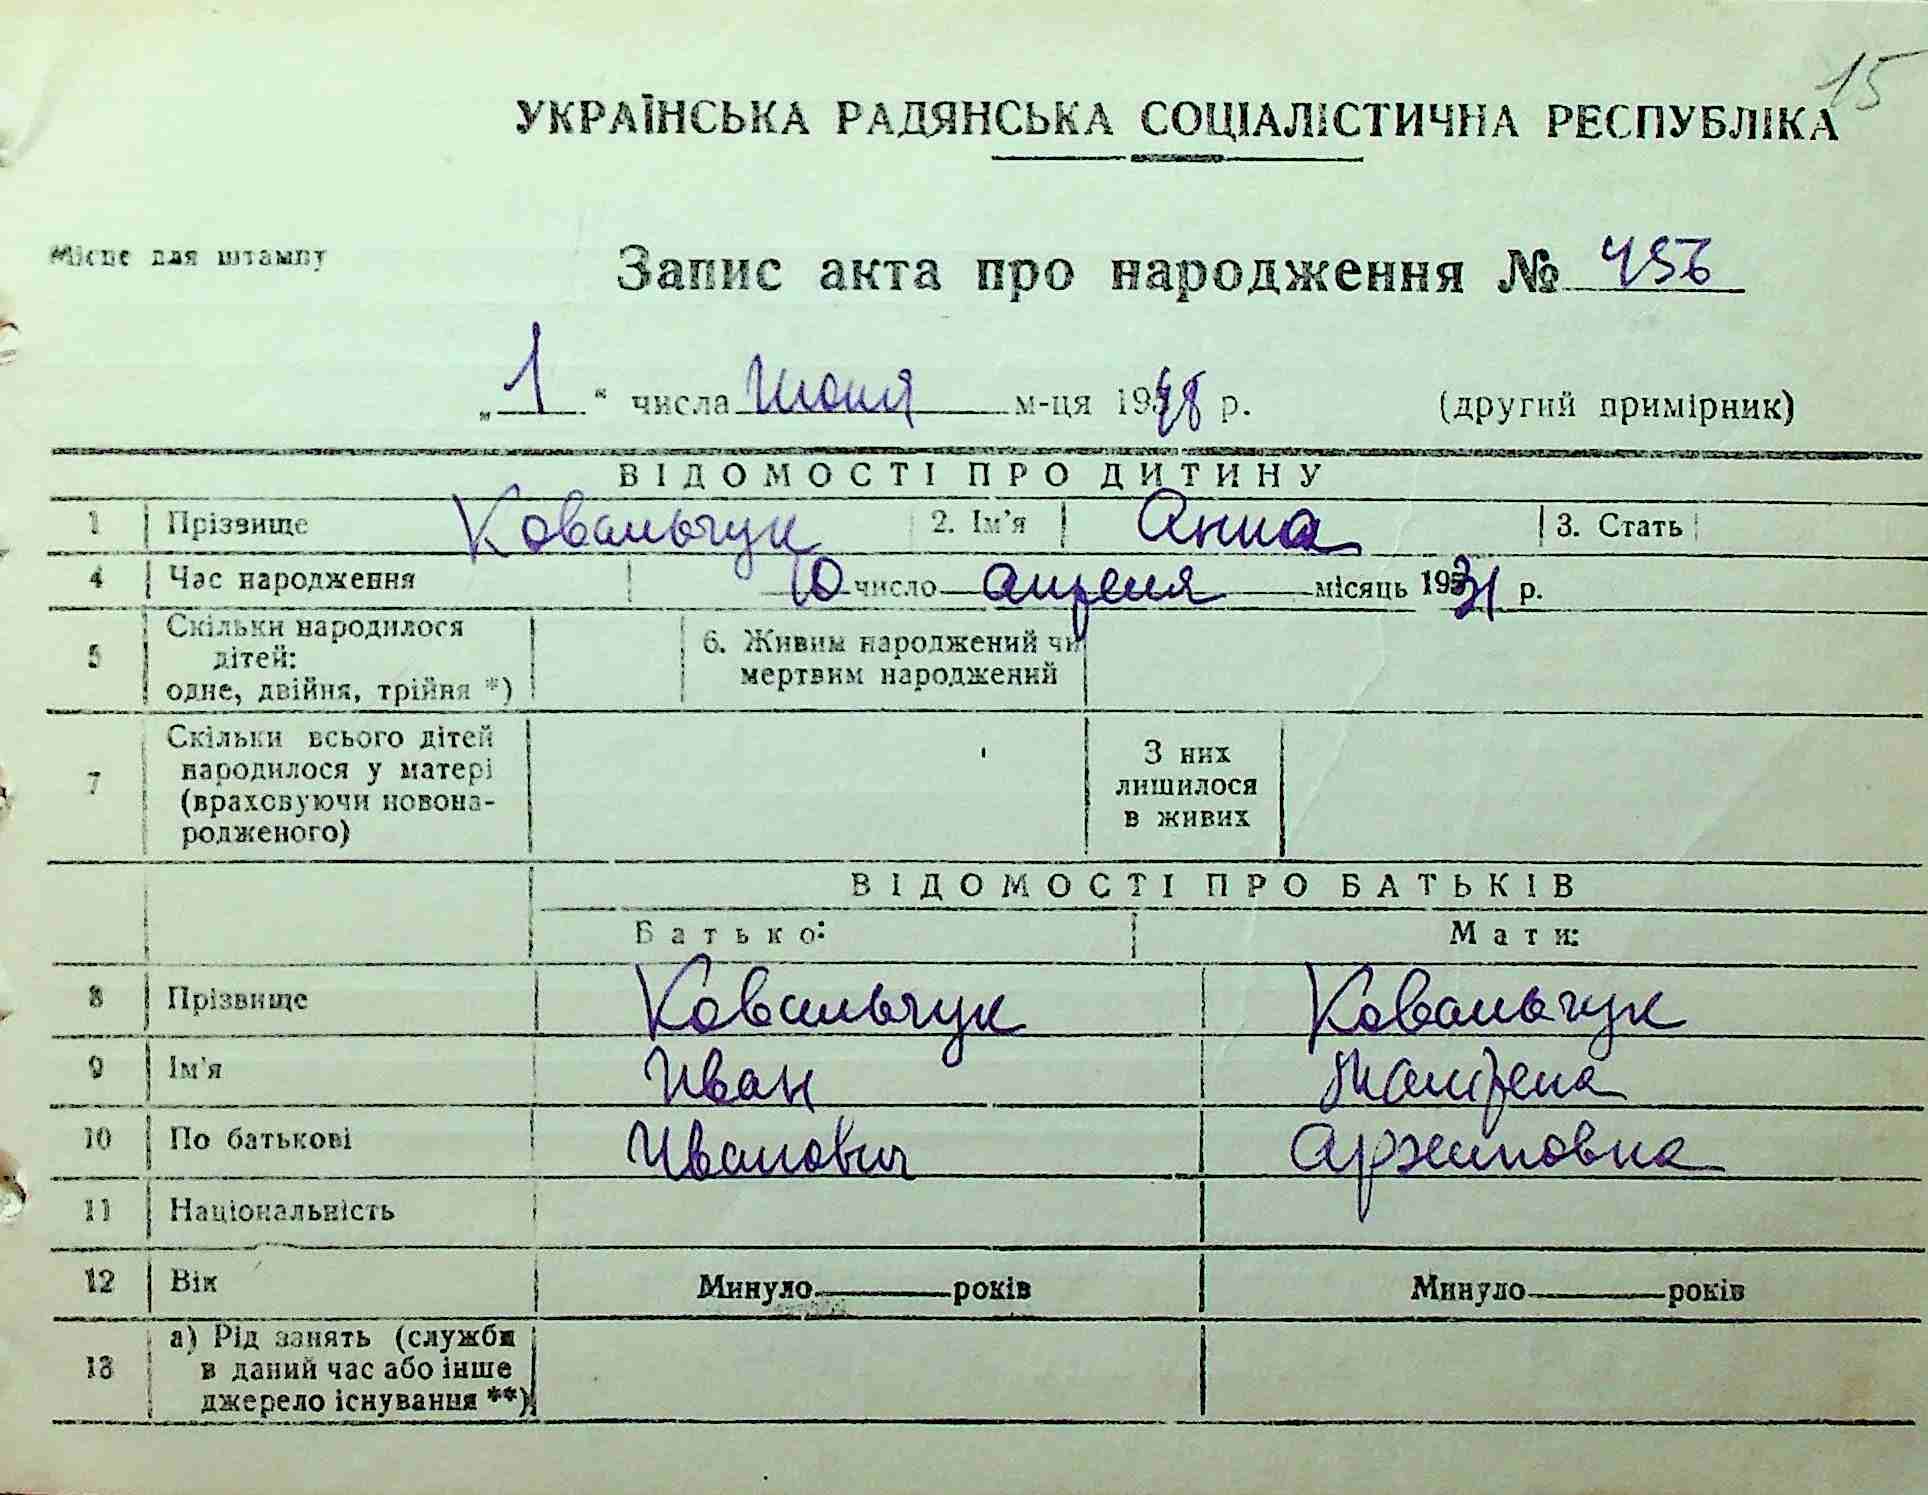 15
УКРАЇНСЬКА РАДЯНСЬКА СОЦІАЛІСТИЧНА РЕСПУБЛІКА
Місце для штампу
Запис акта про народження № 456
„ 1 “ числа Июня м-ця 1948 р. (другий примірник)
ВІДОМОСТІ ПРО ДИТИНУ
1 Прізвище Ковальчук 2. Ім'я Анна 3. Стать
4 Час народження 10 число апреля місяць 1931 р.
5 Скільки народилося дітей: одне, двійня, трійня *) 6. Живим народжений чи мертвим народжений
7 Скільки всього дітей народилося у матері (враховуючи новонародженого) З них лишилося в живих
ВІДОМОСТІ ПРО БАТЬКІВ
Батько: Мати:
8 Прізвище Ковальчук Ковальчук
9 Ім'я Иван
10 По батькові Иванович
11 Національність
12 Вік Минуло років Минуло років
13 а) Рід занять (служби в даний час або інше джерело існування **)